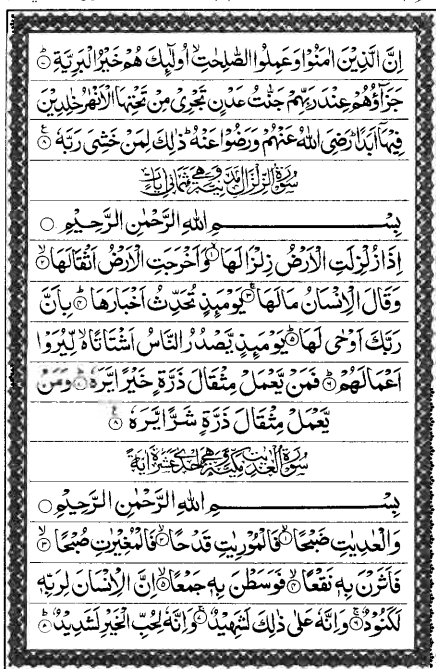 اِنَّ الَّذِيْنَ اٰمَنُوْا وَعَمِلُوا الصّٰلِحٰتِ ۙ اُولٰٓئِكَ هُمْ خَيْرُ الْبَرِيَّةِ ۷
جَزَآؤُهُمْ عِنْدَ رَبِّهِمْ جَنّٰتُ عَدْنٍ تَجْرِيْ مِنْ تَحْتِهَا الْاَنْهٰرُ خٰلِدِيْنَ
فِيْهَآ اَبَدًا ؕ رَضِيَ اللّٰهُ عَنْهُمْ وَرَضُوْا عَنْهُ ؕ ذٰلِكَ لِمَنْ خَشِيَ رَبَّهٗ ۸
سورة الزلزال مدنية وهي ثماني ايات
بِسْمِ اللّٰهِ الرَّحْمٰنِ الرَّحِيْمِ ○
اِذَا زُلْزِلَتِ الْاَرْضُ زِلْزَالَهَا ۱ وَاَخْرَجَتِ الْاَرْضُ اَثْقَالَهَا ۲
وَقَالَ الْاِنْسَانُ مَالَهَا ۳ يَوْمَئِذٍ تُحَدِّثُ اَخْبَارَهَا ۴ بِاَنَّ
رَبَّكَ اَوْحٰى لَهَا ۵ يَوْمَئِذٍ يَّصْدُرُ النَّاسُ اَشْتَاتًا ۙ لِّيُرَوْا
اَعْمَالَهُمْ ۶ فَمَنْ يَّعْمَلْ مِثْقَالَ ذَرَّةٍ خَيْرًا يَّرَهٗ ۷ وَمَنْ
يَّعْمَلْ مِثْقَالَ ذَرَّةٍ شَرًّا يَّرَهٗ ۸
سورة العديت مكية وهي احدى عشرة اية
بِسْمِ اللّٰهِ الرَّحْمٰنِ الرَّحِيْمِ ○
وَالْعٰدِيٰتِ ضَبْحًا ۱ فَالْمُوْرِيٰتِ قَدْحًا ۲ فَالْمُغِيْرٰتِ صُبْحًا ۳
فَاَثَرْنَ بِهٖ نَقْعًا ۴ فَوَسَطْنَ بِهٖ جَمْعًا ۵ اِنَّ الْاِنْسَانَ لِرَبِّهٖ
لَكَنُوْدٌ ۶ وَاِنَّهٗ عَلٰى ذٰلِكَ لَشَهِيْدٌ ۷ وَاِنَّهٗ لِحُبِّ الْخَيْرِ لَشَدِيْدٌ ۸